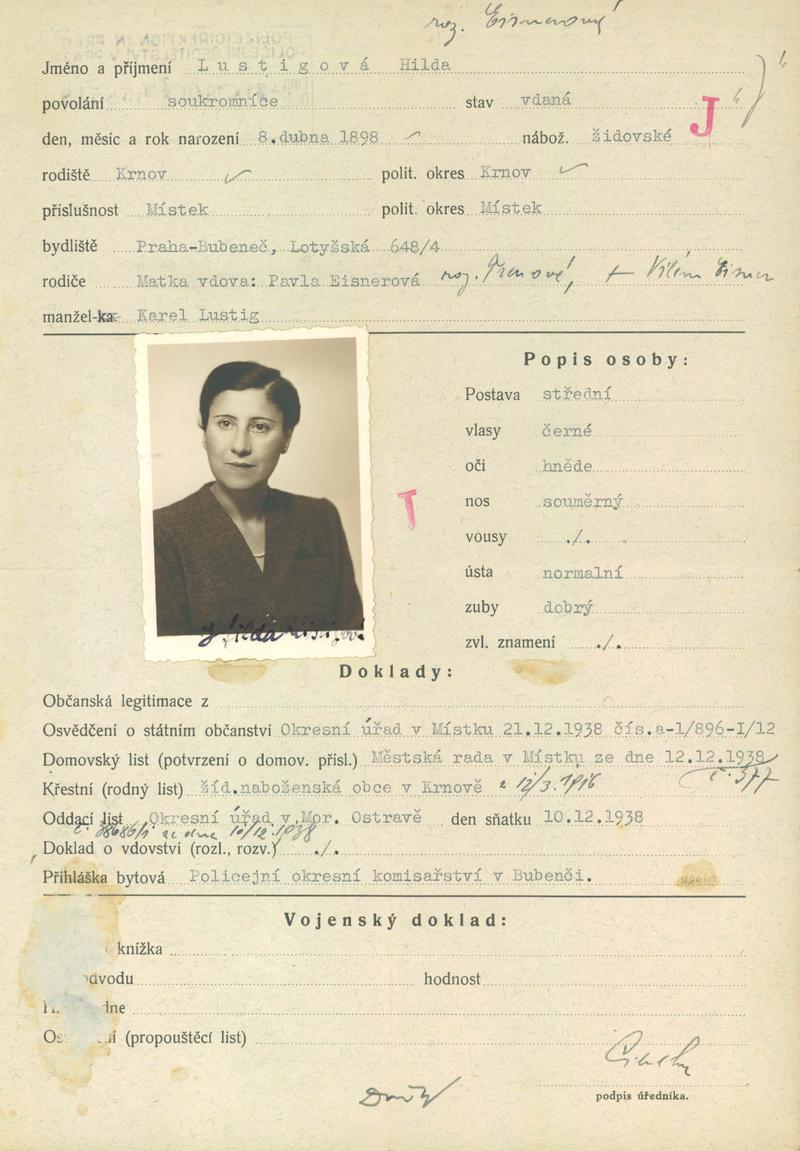 roz. Eisnerová
Jméno a příjmení Lustigová Hilda
povolání soukromnice stav vdaná
J
den, měsíc a rok narození 8.dubna 1898 nábož. židovské
rodiště Krnov polit. okres Krnov
příslušnost Místek polit. okres Místek
bydliště Praha-Bubeneč, Lotyšská 648/4
rodiče Matka vdova: Pavla Eisnerová roz. + Vilém Eisner
manžel-ka Karel Lustig
Popis osoby:
Postava střední
vlasy černé
oči hněde
J
nos souměrný
vousy ./.
ústa normalní
zuby dobrý
zvl. znamení ./.
Hilda Lustigová
Doklady:
Občanská legitimace z
Osvědčení o státním občanství Okresní úřad v Místku 21.12.1938 čís.a-1/896-I/12
Domovský list (potvrzení o domov. přísl.) Městská rada v Místku ze dne 12.12.1938
č. 377
Křestní (rodný list) žid.naboženská obce v Krnově z 12/3.1916
Oddací list Okresní úřad v Mor. Ostravě den sňatku 10.12.1938
ze dne 10/12.1938
Doklad o vdovství (rozl., rozv.) ./.
Přihláška bytová Policejní okresní komisařství v Bubenči.
Vojenský doklad:
knížka
hodnost
dne
(propouštěcí list)
podpis úředníka.